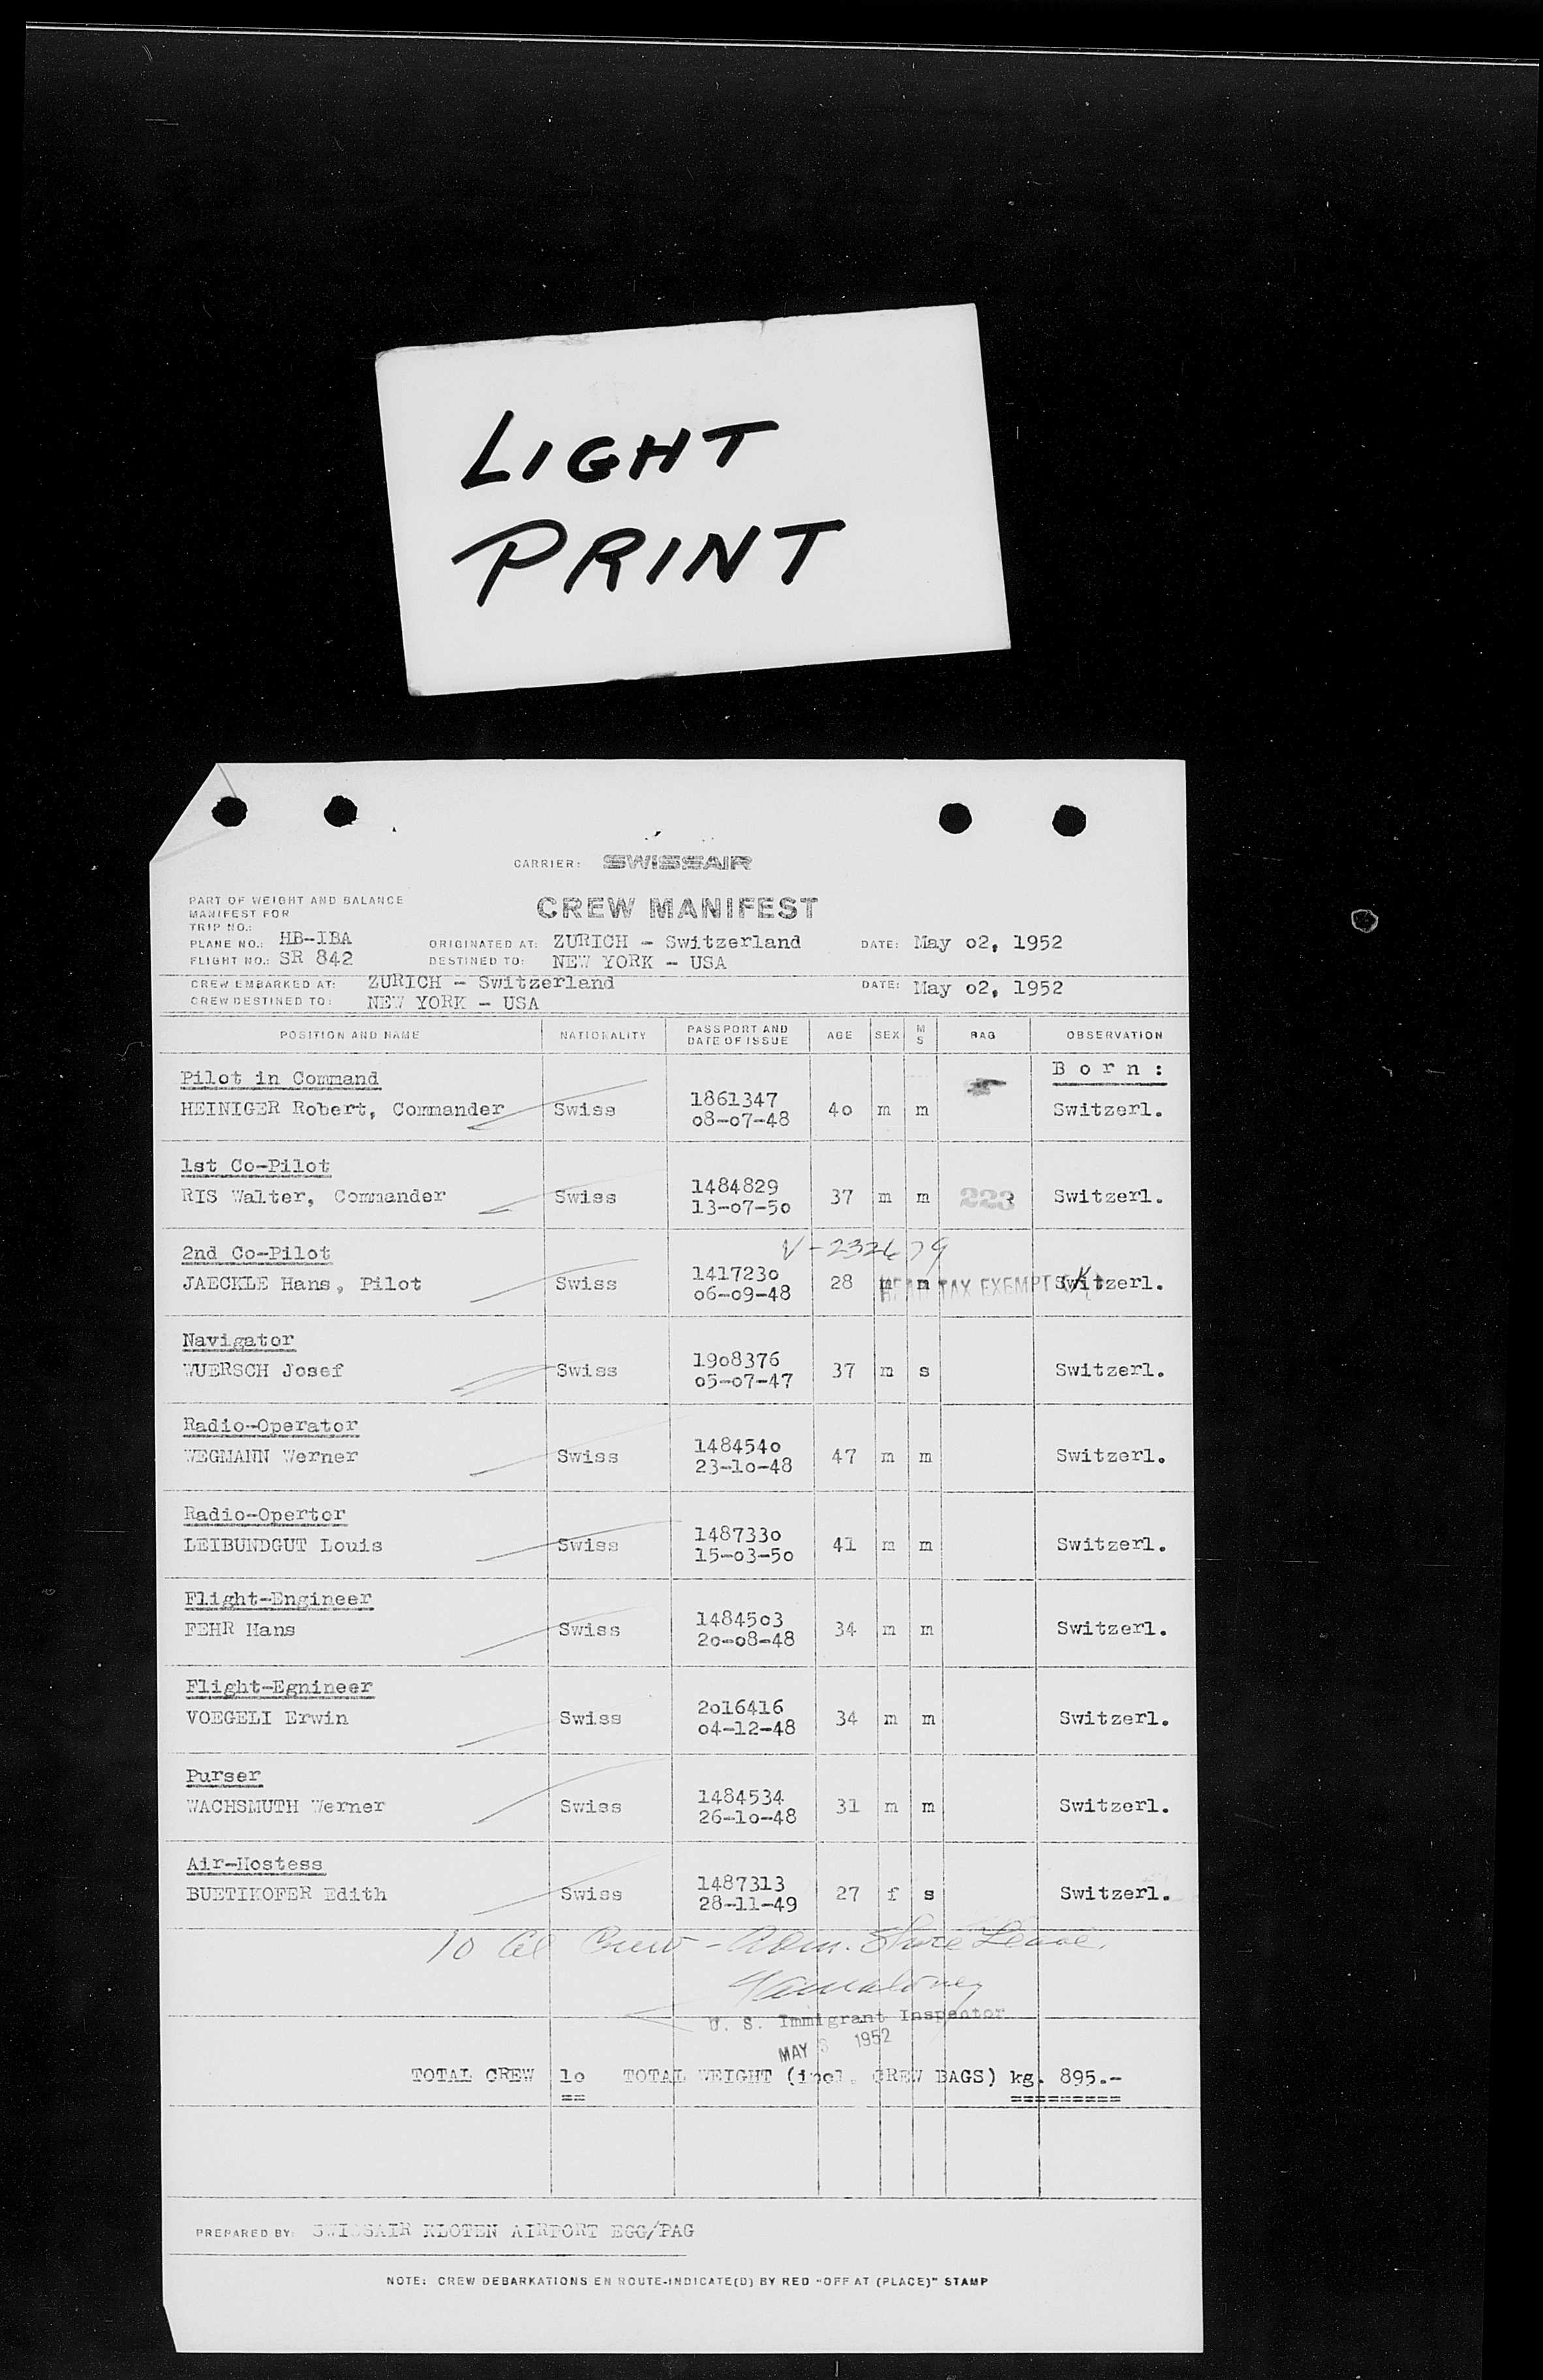 LIGHT
PRINT
CARRIER: SWISSAIR
PART OF WEIGHT AND BALANCE
MANIFEST FOR
CREW MANIFEST
TRIP NO.:
PLANE NO.: HB-IBA ORIGINATED AT: ZURICH - Switzerland DATE: May o2, 1952
FLIGHT NO.: SR 842 DESTINED TO: NEW YORK - USA
CREW EMBARKED AT: ZURICH - Switzerland DATE: May o2, 1952
CREW DESTINED TO: NEW YORK - USA
POSITION AND NAME NATIONALITY PASSPORT AND DATE OF ISSUE AGE SEX M S BAG OBSERVATION
Pilot in Command B o r n :
HEINIGER Robert, Commander Swiss 1861347 4o m m Switzerl.
o8-o7-48
1st Co-Pilot
RIS Walter, Commander Swiss 1484829 37 m m 223 Switzerl.
13-o7-5o
2nd Co-Pilot V-232679
JAECKLE Hans, Pilot Swiss 141723o 28 m m Switzerl.
o6-o9-48
HEAD TAX EXEMPT
Navigator
WUERSCH Josef Swiss 19o8376 37 m s Switzerl.
o5-o7-47
Radio-Operator
WEGMANN Werner Swiss 148454o 47 m m Switzerl.
23-1o-48
Radio-Opertor
LEIBUNDGUT Louis Swiss 148733o 41 m m Switzerl.
15-o3-5o
Flight-Engineer
FEHR Hans Swiss 14845o3 34 m m Switzerl.
2o-o8-48
Flight-Egnineer
VOEGELI Erwin Swiss 2o16416 34 m m Switzerl.
o4-12-48
Purser
WACHSMUTH Werner Swiss 1484534 31 m m Switzerl.
26-1o-48
Air-Hostess
BUETIKOFER Edith Swiss 1487313 27 f s Switzerl.
28-11-49
10 Crew - Adm. Shore Leave.
U. S. Immigrant Inspector
MAY 1952
TOTAL CREW 1o TOTAL WEIGHT (incl. CREW BAGS) kg. 895.-
PREPARED BY: SWISSAIR KLOTEN AIRPORT EGG/PAG
NOTE: CREW DEBARKATIONS EN ROUTE-INDICATE(D) BY RED "OFF AT (PLACE)" STAMP